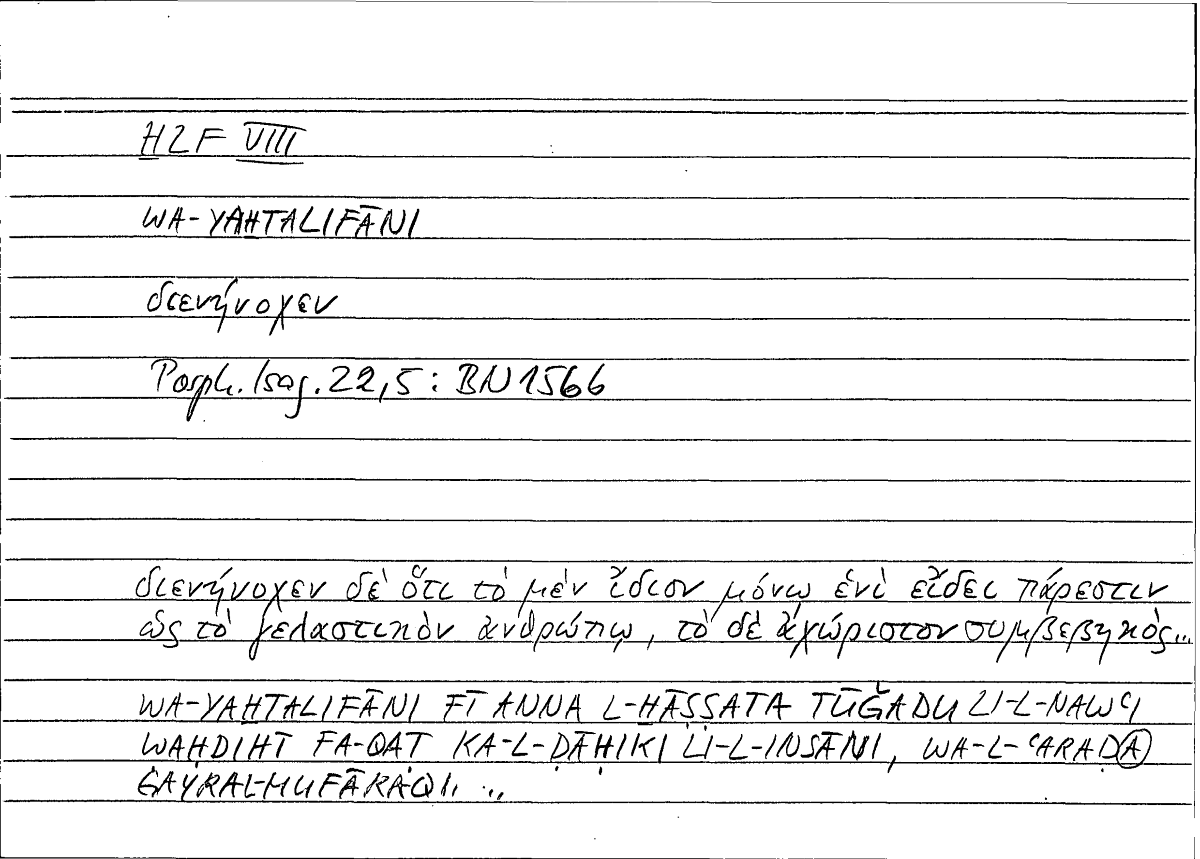 H̱LF VIII
WA-YAH̱TALIFĀNI
διενήνοχεν
Porph. Isag. 22,5: BN 156b
διενήνοχεν δὲ ὅτι τὸ μὲν ἴδιον μόνῳ ἑνὶ εἴδει πάρεστιν
ὡς τὸ γελαστικὸν ἀνθρώπῳ, τὸ δὲ ἀχώριστον συμβεβηκός...
WA-YAH̱TALIFĀNI FĪ ANNA L-H̱ĀṢṢATA TŪǦADU LI-L-NAWʿI
WAḤDIHĪ FA-QAṬ KA-L-ḌĀḤIKI LI-L-INSĀNI, WA-L-ʿARAḌA
ĠAYRA L-MUFĀRAQI ...